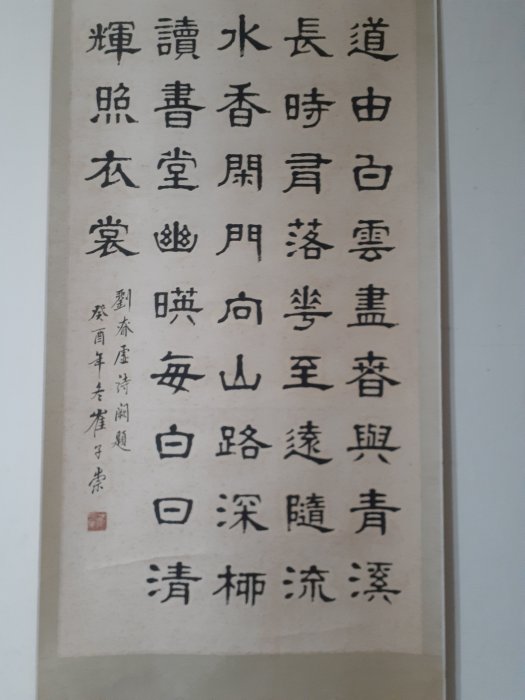 道由白雲盡春與青溪
長時有落花至遠隨流
水香閑門向山路深柳
讀書堂幽暎每白日清
輝照衣裳
劉春虛詩闕題
癸酉年冬崔子崇